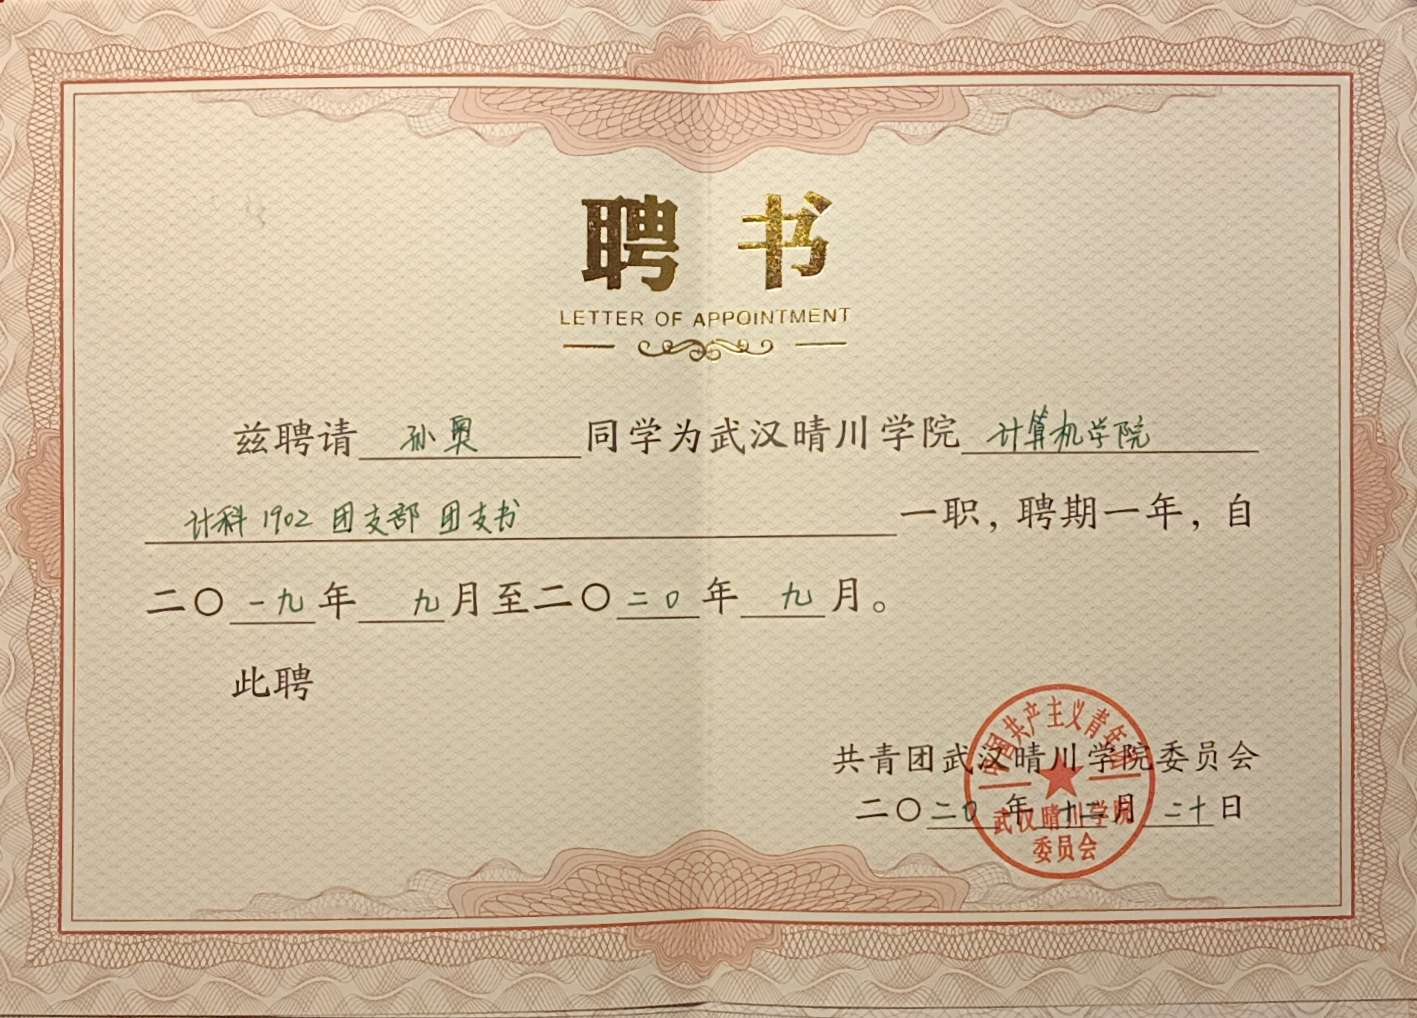 聘书
LETTER OF APPOINTMENT
兹聘请 孙奥 同学为武汉晴川学院 计算机学院
计科1902团支部 团支书 一职，聘期一年，自
二〇一九年 九月至二〇二〇年 九月。
此聘
共青团武汉晴川学院委员会
二〇二〇年十二月二十日
中国共产主义青年团
武汉晴川学院
委员会